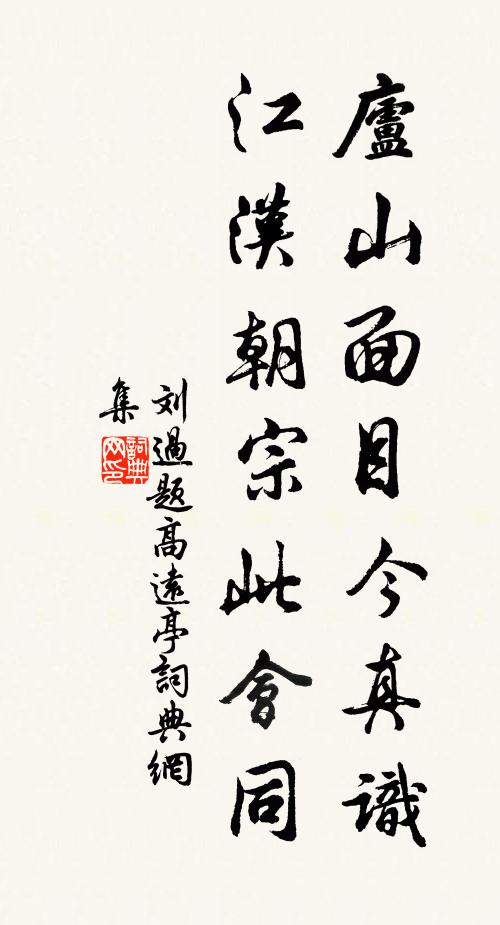 廬山面目今真識
江漢朝宗此會同
刘過題高遠亭詞典網
集
詞典
网印